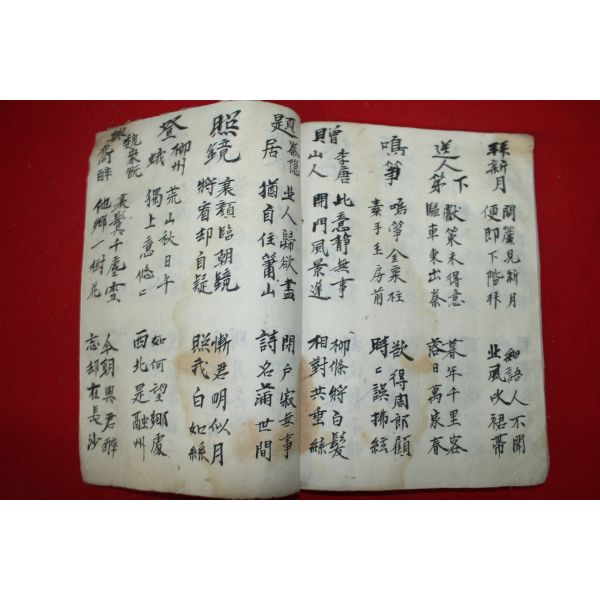 拜新月
開簾見新月
便即下階拜
細語人不聞
北風吹裙帶
送人下第
獻策未得意
驅車東出秦
暮年千里客
落日萬家春
鳴箏
鳴箏金粟柱
素手玉房前
欲得周郎顧
時〻誤拂絃
贈李唐
山人
此意靜無事
閉門風景遲
柳條將白髮
相對共垂絲
題秦隱
居
北人歸欲盡
猶自住蕭山
閉户寂無事
詩名滿世間
照鏡
衰顏臨朝鏡
將看却自疑
慚君明似月
照我白如絲
登柳州
蛾
荒山秋日午
獨上意悠〻
如何望鄉處
西北是融州
醉
衰鬢千莖雪
他鄉一樹花
今朝與君醉
忘却在長沙